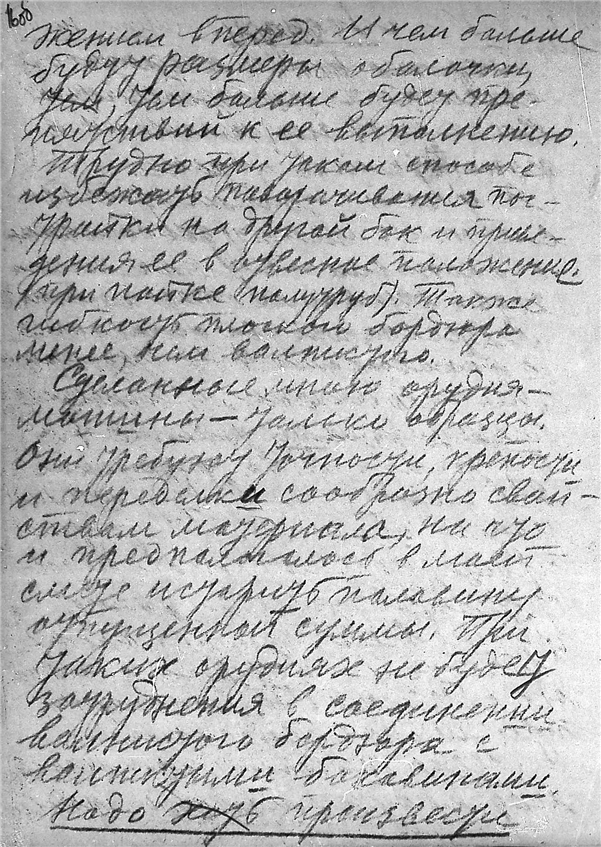 166
жением вперед. И чем больше
будут размеры оболочки,
тем, тем больше будет пре-
пятствий к ее выполнению.
Трудно при таком способе
избежать поворачивания пос-
тройки на другой бок и приве-
дения ее в отвесное положение.
(при пайке полутруб). Также
гибкость плоской бордюра
менее, чем волнистого.
Сделанные мною орудия-
машины – только образцы.
Они требуют точности, крепости
и переделки сообразно свой-
ствам материала, на что
и предполагалось в моей
смете истратить половину
отпущенной суммы. При
таких орудиях не будет
затруднения в соединении
волнистого бордюра с
волнистыми боковинами.
Надо хоть произвести